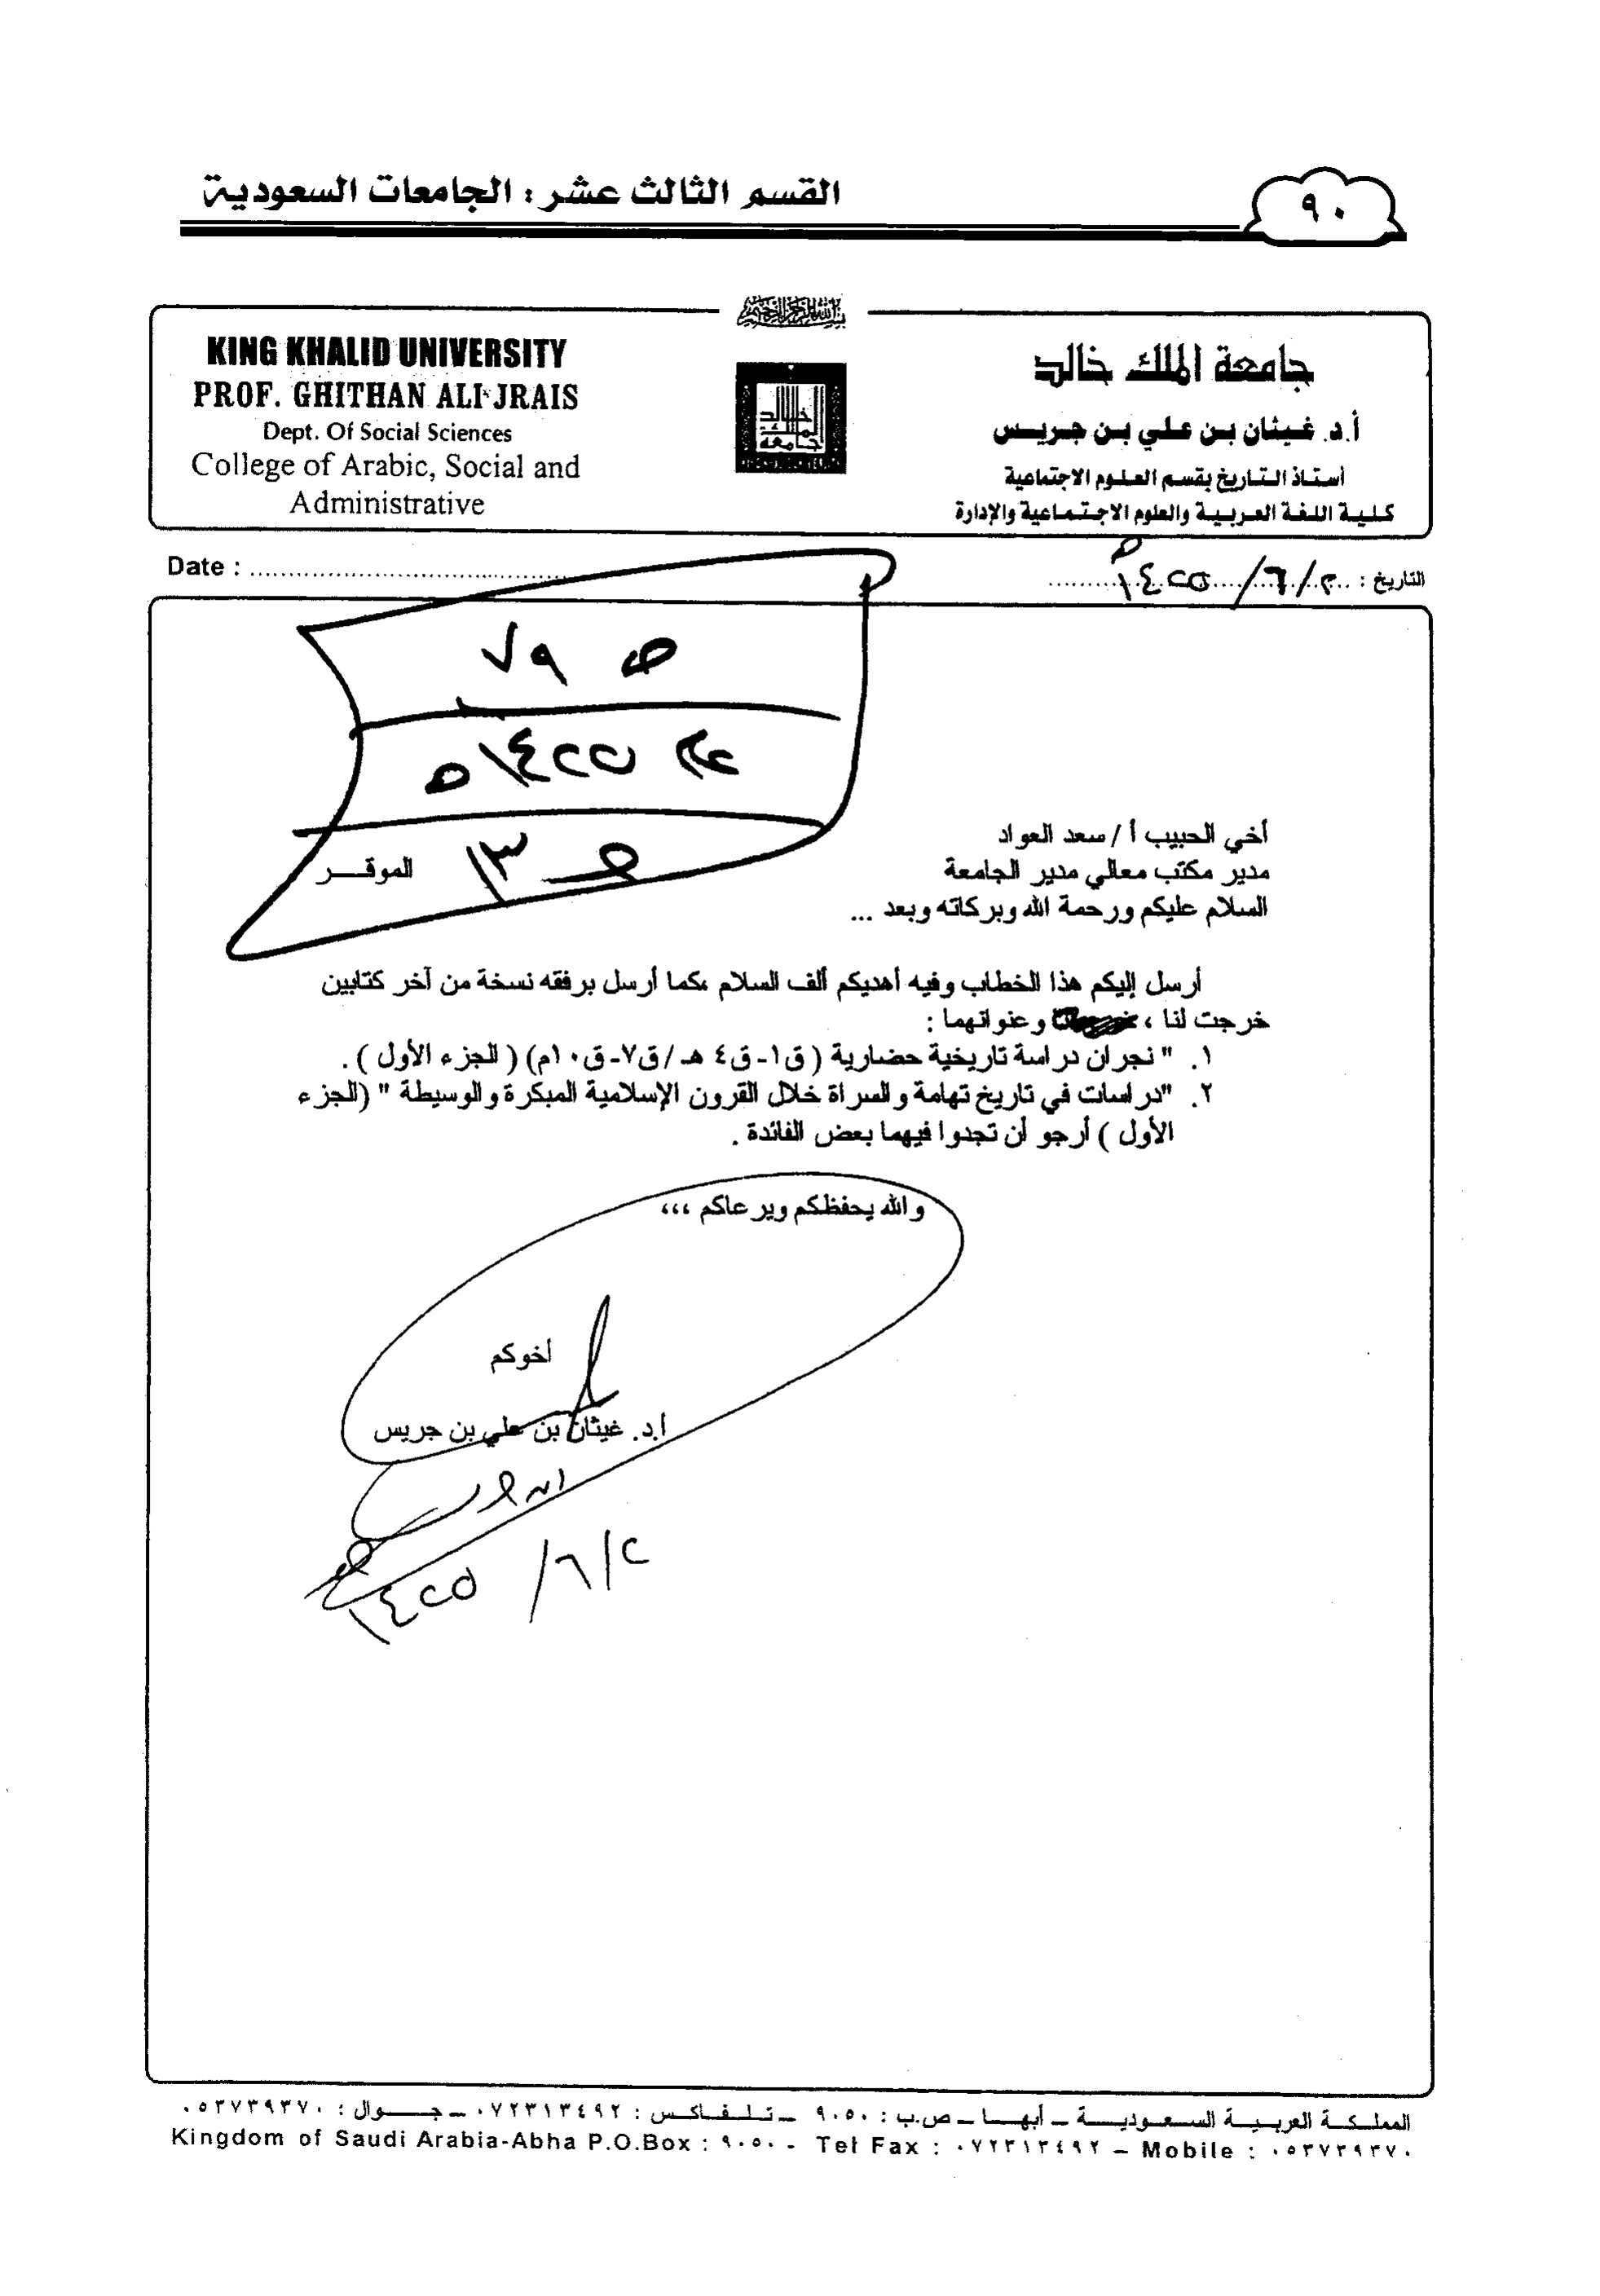 القسم الثالث عشر : الجامعات السعودية
٩٠
بسم الله الرحمن الرحيم
KING KHALID UNIVERSITY
PROF. GHITHAN ALI JRAIS
Dept. Of Social Sciences
College of Arabic, Social and
Administrative
جامعة الملك خالد
أ.د. غيثان بن علي بن جريس
أستاذ التاريخ بقسم العلوم الاجتماعية
كلية اللغة العربية والعلوم الاجتماعية والإدارة
Date : ........................................
التاريخ : ٢/٦/١٤٢٥هـ
ص ٧٩
عام ١٤٢٥هـ
١٣
أخي الحبيب أ / سعد العواد
مدير مكتب معالي مدير الجامعة الموقـــر
السلام عليكم ورحمة الله وبركاته وبعد ...
أرسل إليكم هذا الخطاب وفيه أهديكم ألف السلام ،كما أرسل برفقه نسخة من آخر كتابين
خرجت لنا ، وعنوانهما :
١. " نجران دراسة تاريخية حضارية ( ق١- ق٤ هـ /ق٧- ق١٠م) ( الجزء الأول ) .
٢. "دراسات في تاريخ تهامة والسراة خلال القرون الإسلامية المبكرة والوسيطة " (الجزء
الأول ) أرجو أن تجدوا فيهما بعض الفائدة .
والله يحفظكم ويرعاكم ،،،
أخوكم
أ.د. غيثان بن علي بن جريس
٢/٦/١٤٢٥
المملكة العربية السعودية – أبها – ص.ب : ٩٠٥٠ – تلفاكس : ٠٧٢٣١٣٤٩٢ – جوال : ٠٥٣٧٣٩٣٧٠
Kingdom of Saudi Arabia-Abha P.O.Box : ٩٠٥٠ - Tel Fax : ٠٧٢٣١٣٤٩٢ – Mobile : ٠٥٣٧٣٩٣٧٠